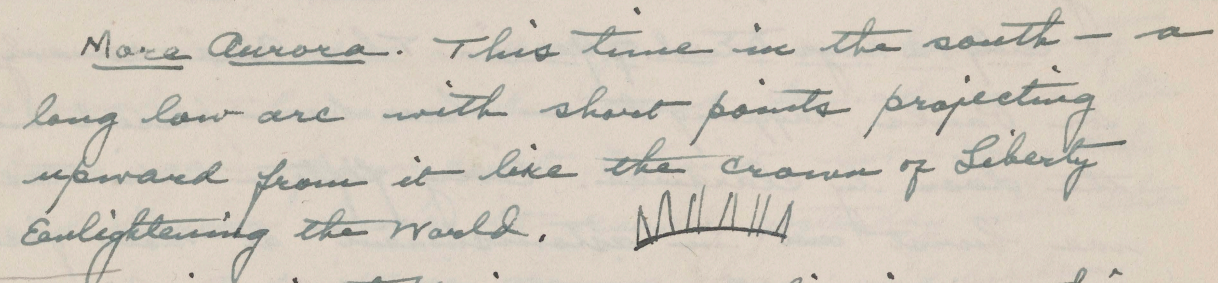 More Aurora. This time in the south — a
long low arc with short points projecting
upward from it like the crown of Liberty
Enlightening the World.